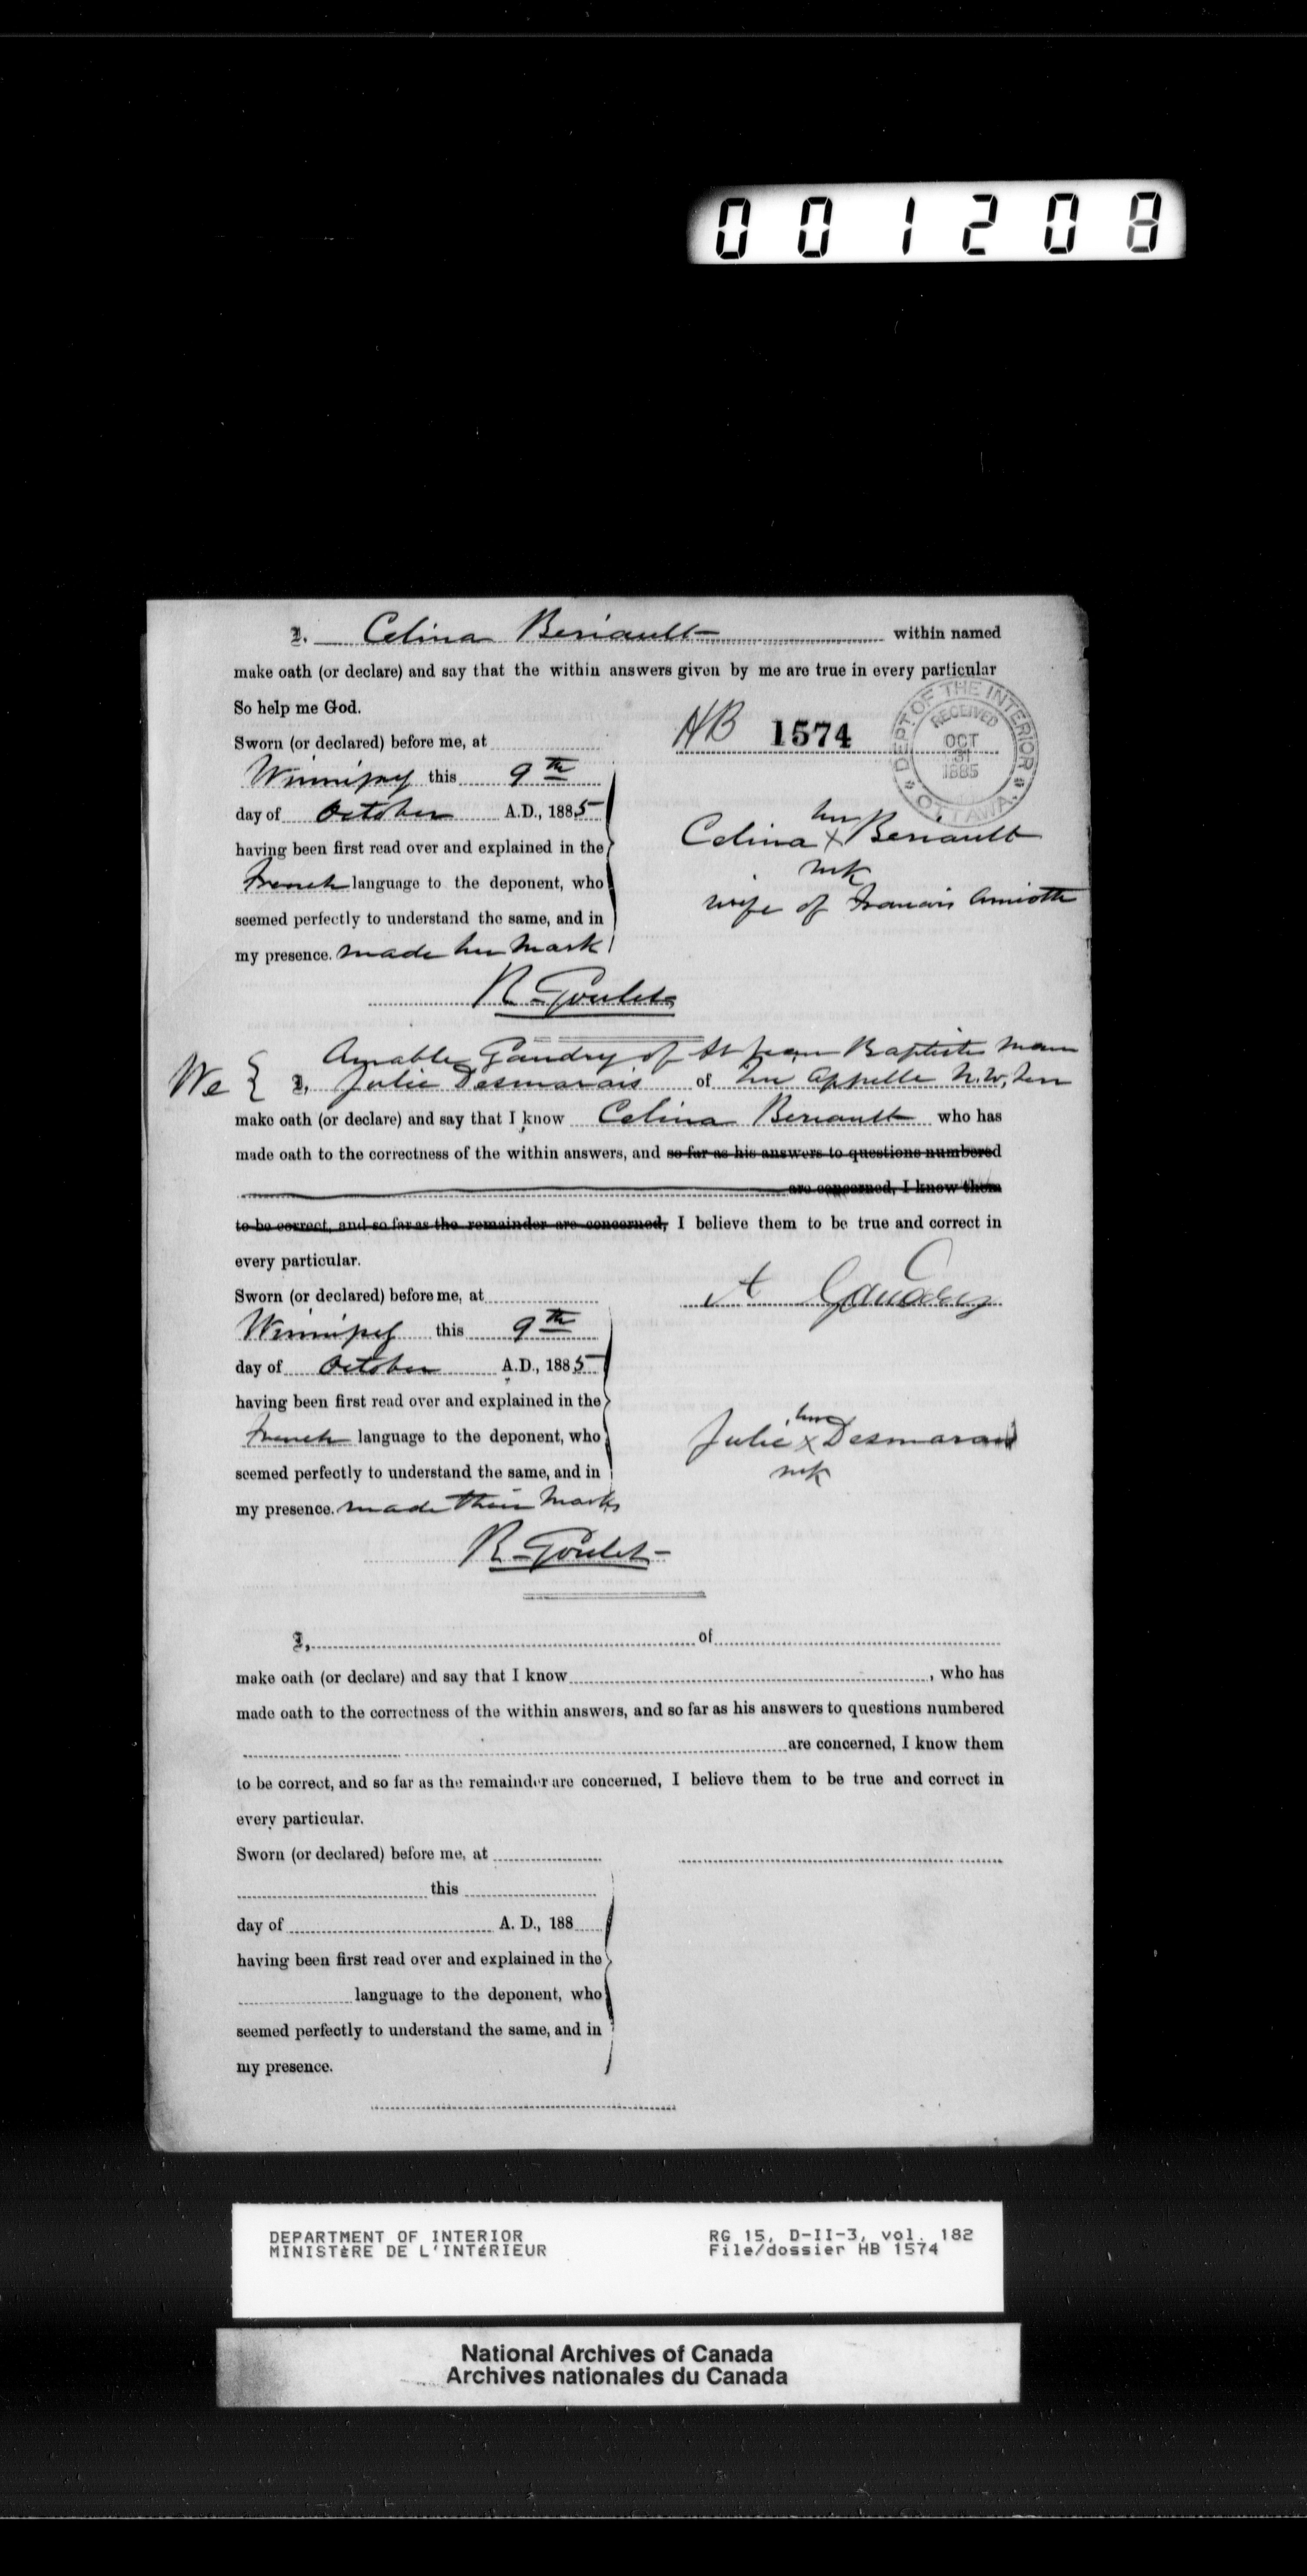 001208
I, Celina Beriault within named
make oath (or declare) and say that the within answers given by me are true in every particular
So help me God.
HB 1574
DEPT OF THE INTERIOR
RECEIVED
OCT
31
1885
OTTAWA
Sworn (or declared) before me, at
Winnipeg this 9th
day of October A.D., 1885
having been first read over and explained in the
French language to the deponent, who
seemed perfectly to understand the same, and in
my presence. made her mark
her
Celina x Beriault
mk
wife of Francois Amiotte
R Goulet
Amable Gaudry of St Jean Baptiste Man
We { I, Julie Desmarais of Qu'Appelle N.W. Terr
make oath (or declare) and say that I know Celina Beriault who has
made oath to the correctness of the within answers, and so far as his answers to questions numbered
are concerned, I know them
to be correct, and so far as the remainder are concerned, I believe them to be true and correct in
every particular.
Sworn (or declared) before me, at
Winnipeg this 9th
day of October A.D., 1885
having been first read over and explained in the
French language to the deponent, who
seemed perfectly to understand the same, and in
my presence. made their marks
A Gaudry
her
Julie x Desmarais
mk
R Goulet
I, of
make oath (or declare) and say that I know , who has
made oath to the correctness of the within answers, and so far as his answers to questions numbered
are concerned, I know them
to be correct, and so far as the remainder are concerned, I believe them to be true and correct in
every particular.
Sworn (or declared) before me, at
this
day of A. D., 188
having been first read over and explained in the
language to the deponent, who
seemed perfectly to understand the same, and in
my presence.
DEPARTMENT OF INTERIOR RG 15, D-II-3, vol. 182
MINISTÈRE DE L'INTÉRIEUR File/dossier HB 1574
National Archives of Canada
Archives nationales du Canada